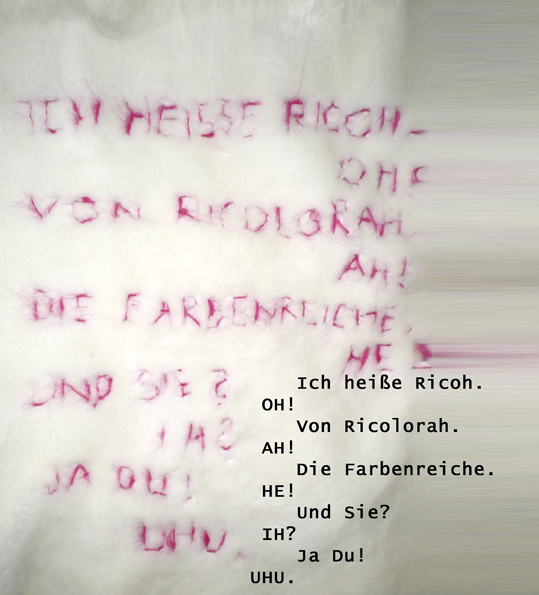 ICH HEISSE RICOH.
OH!
VON RICOLORAH.
AH!
DIE FARBENREICHE.
HE!
UND SIE?
IH?
JA DU!
UHU.
Ich heiße Ricoh.
OH!
Von Ricolorah.
AH!
Die Farbenreiche.
HE!
Und Sie?
IH?
Ja Du!
UHU.